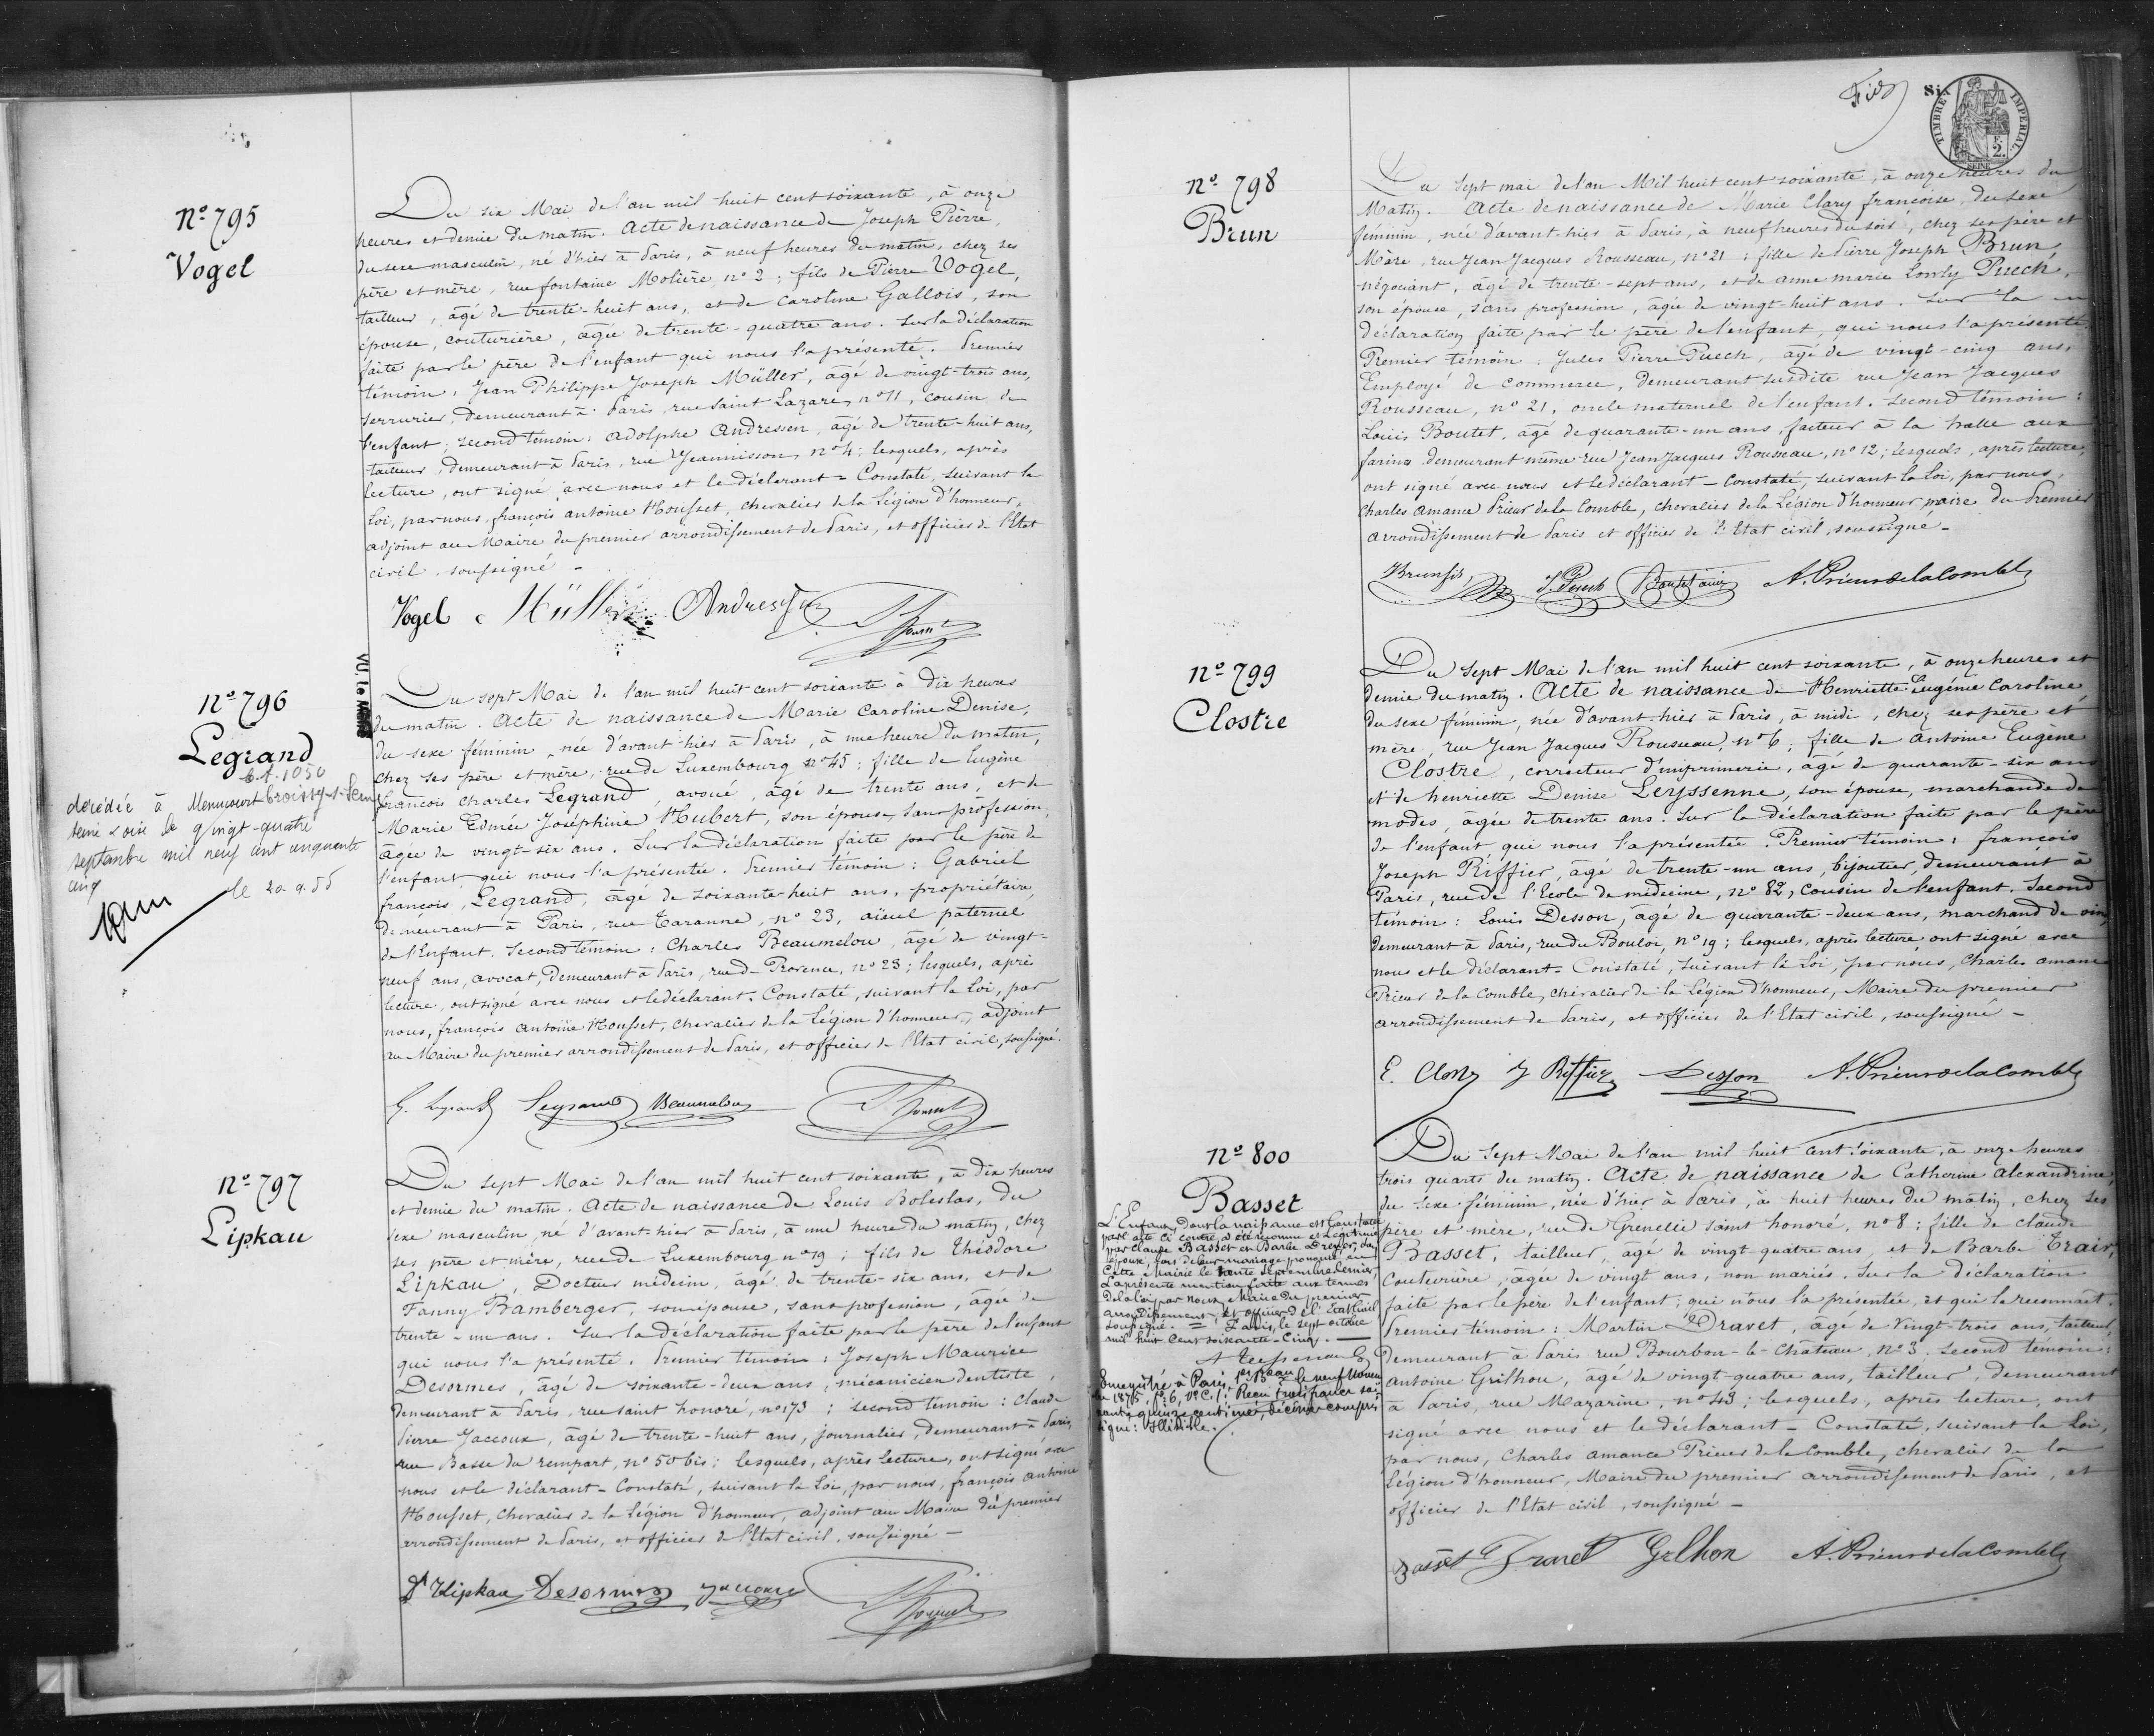 N° 795
Vogel
Du six Mai de l'an mil huit cent soixante, à onze
heures et demie du matin. Acte de naissance de Joseph Pierre,
du sexe masculin, né d'hier à Paris, à neuf heures du matin, chez ses
père et mère, rue fontaine Molière, n° 2; fils de Pierre Vogel,
tailleur, âgé de trente-huit ans, et de Caroline Gallois, son
épouse, couturière, âgée de trente-quatre ans. Sur la déclaration
faite par le père de l'enfant qui nous l'a présenté. Premier
témoin, Jean Philippe Joseph Müller, âgé de vingt-trois ans,
serrurier, demeurant à Paris, rue Saint Lazare, n° 11, cousin de
l'enfant; second témoin: Adolphe Andressen, âgé de trente-huit ans,
tailleur, demeurant à Paris, rue Jeannisson, n° 4; lesquels, après
lecture, ont signé avec nous et le déclarant - Constaté, suivant la
loi, par nous, françois antoine Housset, chevalier de la Légion d'honneur,
adjoint au Maire du premier arrondissement de Paris, et officier de l'Etat
civil, soussigné -
Vogel Müller Andressen
VU. Le
N° 796
Legrand
décédée à
seine & oise le vingt-quatre
septembre mil neuf cent cinquante
cinq
Du sept Mai de l'an mil huit cent soixante à dix heures
du matin. Acte de naissance de Marie Caroline Denise,
du sexe féminin, née d'avant-hier à Paris, à une heure du matin,
chez ses père et mère, rue de Luxembourg n° 45; fille de Eugène
françois Charles Legrand, avoué, âgé de trente ans, et de
Marie Edmée Joséphine Hubert, son épouse, sans profession,
âgée de vingt-six ans. Sur la déclaration faite par le père de
l'enfant qui nous l'a présentée. Premier témoin: Gabriel
françois Legrand, âgé de soixante-huit ans, propriétaire,
demeurant à Paris, rue Taranne, n° 23, aïeul paternel
de l'Enfant. Second témoin: Charles Beaumelou, âgé de vingt-
neuf ans, avocat, demeurant à Paris, rue de Provence, n° 23; lesquels, après
lecture, ont signé avec nous et le déclarant. Constaté, suivant la Loi, par
nous, françois Antoine Housset, chevalier de la Légion d'honneur, adjoint
au Maire du premier arrondissement de Paris, et officier de l'Etat civil, soussigné.
Legrand Beaumelou
N° 797
Lipkau
Du sept Mai de l'an mil huit cent soixante, à dix heures
et demie du matin. Acte de naissance de Louis Boleslas, du
sexe masculin, né d'avant-hier à Paris, à une heure du matin, chez
ses père et mère, rue de Luxembourg n° 19; fils de Théodore
Lipkau, Docteur médecin, âgé de trente-six ans, et de
Fanny Bamberger, son épouse, sans profession, âgée de
trente-un ans. Sur la déclaration faite par le père de l'enfant
qui nous l'a présenté. Premier témoin: Joseph Maurice
Desormes, âgé de soixante-deux ans, mécanicien dentiste,
demeurant à Paris, rue saint honoré, n° 173; second témoin: Claude
Pierre Jaccoux, âgé de trente-huit ans, journalier, demeurant à Paris,
rue Basse du rempart, n° 50 bis; lesquels, après lecture, ont signé avec
nous et le déclarant - Constaté, suivant la Loi, par nous, françois antoine
Housset, chevalier de la Légion d'honneur, adjoint au Maire du premier
arrondissement de Paris, et officier de l'Etat civil, soussigné -
Dr Lipkau Desormes Jaccoux
TIMBRE IMPERIAL
2.
SEINE
N° 798
Brun
Du Sept mai de l'an Mil huit cent soixante, à onze heures du
Matin. Acte de naissance de Marie Clary françoise, du sexe
féminin, née d'avant-hier à Paris, à neuf heures du soir, chez ses père et
Mère, rue Jean Jacques Rousseau, n° 21; fille de Pierre Joseph Brun,
négociant, âgé de trente-sept ans, et de anne marie Puech,
son épouse, sans profession, âgée de vingt-huit ans. Sur la
déclaration faite par le père de l'enfant, qui nous l'a présenté.
Premier témoin: Jules Pierre Puech, âgé de vingt-cinq ans,
Employé de commerce, demeurant susdite rue Jean Jacques
Rousseau, n° 21, oncle maternel de l'enfant. Second témoin:
Louis Boutet, âgé de quarante-un ans, facteur à la halle aux
farines demeurant même rue Jean Jacques Rousseau, n° 12; lesquels, après lecture,
ont signé avec nous et le déclarant - Constaté, suivant la Loi, par nous,
Charles Amance Prieur de la Comble, chevalier de la Légion d'honneur, maire du Premier
arrondissement de Paris et officier de l'Etat civil, soussigné -
Brun fils J. Puech A. Prieur de la Comble
N° 799
Clostre
Du Sept Mai de l'an mil huit cent soixante, à onze heures et
demie du matin. Acte de naissance de Henriette Eugénie Caroline
du sexe féminin, née d'avant-hier à Paris, à midi, chez ses père et
mère, rue Jean Jacques Rousseau, n° 6; fille de Antoine Eugène
Clostre, correcteur d'imprimerie, âgé de quarante-six ans
et de henriette Denise Leyssenne, son épouse, marchande de
modes, âgée de trente ans. Sur la déclaration faite par le père
de l'enfant qui nous l'a présentée. Premier témoin: françois
Joseph Riffier, âgé de trente-un ans, bijoutier, demeurant à
Paris, rue de l'Ecole de médecine, n° 82, cousin de l'enfant. Second
témoin: Louis Desson, âgé de quarante-deux ans, marchand de vin,
demeurant à Paris, rue du Bouloi, n° 19; lesquels, après lecture ont signé avec
nous et le déclarant - Constaté, suivant la Loi, par nous, Charles amance
Prieur de la Comble, chevalier de la Légion d'honneur, Maire du premier
arrondissement de Paris, et officier de l'Etat civil, soussigné -
E. Clostre J Riffier Desson A. Prieur de la Comble
N° 800
Basset
L'Enfant dont la naissance est constatée
par l'acte ci contre, a été reconnu et légitimé
par Claude Basset et Barbe
époux, lors de leur mariage prononcé en
cette Mairie le trente septembre dernier
La présente mention faite aux termes
de la loi par nous Maire du premier
arrondissement et officier de l'Etat civil
soussigné. - Paris, le sept octobre
mil huit cent soixante-cinq. -
Enregistré à Paris, 1er Bureau le neuf
Reçu trois francs soi-
xante quinze centimes, décime compris
signé: Illisible.
Du Sept Mai de l'an mil huit cent soixante, à onze heures
trois quarts du matin. Acte de naissance de Catherine alexandrine,
du sexe féminin, née d'hier à Paris, à huit heures du matin, chez ses
père et mère, rue de Grenelle saint honoré, n° 8; fille de claude
Basset, tailleur, âgé de vingt quatre ans, et de Barbe
couturière, âgée de vingt ans, non mariés. Sur la déclaration
faite par le père de l'enfant; qui nous l'a présentée, et qui le reconnaît.
Premier témoin: Martin Dravet, âgé de Vingt-trois ans, tailleur,
demeurant à Paris rue Bourbon-le-Chateau, n° 3. Second témoin:
Antoine Grilhon, âgé de vingt-quatre ans, tailleur, demeurant
à Paris, rue Mazarine, n° 43; lesquels, après lecture, ont
signé avec nous et le déclarant - Constaté, suivant la Loi,
par nous, Charles amance Prieur de la Comble, chevalier de la
Légion d'honneur, Maire du premier arrondissement de Paris, et
officier de l'Etat civil, soussigné -
Basset Dravet Grilhon A. Prieur de la Comble